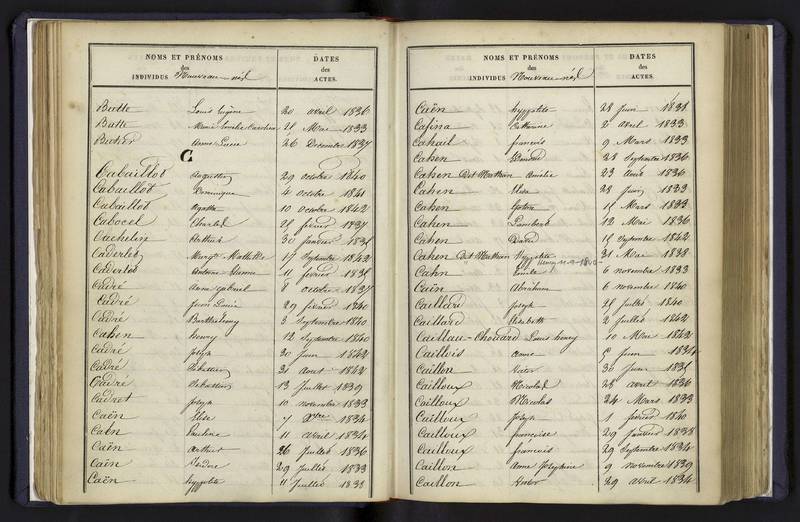 NOMS ET PRÉNOMS
des
INDIVIDUS Nouveau-nés
DATES
des
ACTES.
Butte Louis Eugène 20 avril 1836
Butte 21 Mai 1833
26 Decembre 1837
C
Cabaillot Augustin 29 octobre 1840
Cabaillot Dominique 4 octobre 1841
Cabaillot Agathe 10 octobre 1842
Cabocel Charles février 1837
Cachelin Arthur 30 Janvier
Caderlet 19 Septembre 1842
Caderlet Antoine Etienne 11 février
Cadré Anne gabriel 8 octobre 1837
Cadré Jean Louis 29 février 1840
Cadré Barthélemy 3 Septembre 1840
Cahen henry 12 Septembre 1840
Cadré Joseph 30 Juin 1842
Cadré Sébastien 31 août 1842
Cadré Sébastien 13 Juillet 1839
Cadret Joseph 10 novembre 1833
Caën Elise 7 Xbre 1834
Caën Pauline 11 avril 1834
Caën arthur 26 Juillet 1836
Caën Isidore 29 Juillet 1833
Caën hyppolite 11 Juillet
NOMS ET PRÉNOMS
des
INDIVIDUS Nouveau-nés
DATES
des
ACTES.
Caën hyppolite 28 Juin
Cafina Catherine 2 avril 1833
Cahail francois 9 Mars 1833
Cahen Edmond 21 Septembre 1836
Cahen Dit Mathian Amélie 23 Août 1836
Cahen Elisa 28 Juin 1833
Cahen Mars 1833
Cahen Lambert 12 Mai 1836
Cahen David Septembre 1842
Cahen Dit Mathian hyppolite 31 Mai 1838
Cahn Emile 6 novembre 1833
Caën Abraham 6 novembre 1840
Caillard Joseph Juillet 1840
Caillard Elisabeth 2 Juillet 1842
Caillau-Chouard Louis henry 10 Mai 1842
Caillois anne Juin 1834
Caillon Victor 30 Juin
Cailloux Nicolas 28 avril 1836
Cailloux Nicolas 24 Mars 1833
Cailloux Joseph 1 février 1840
Cailloux francoise 29 Janvier 1838
Cailloux francois 29 Septembre 1834
Caillon Anne Josephine 9 novembre 1839
Caillon Victor 29 avril 1834